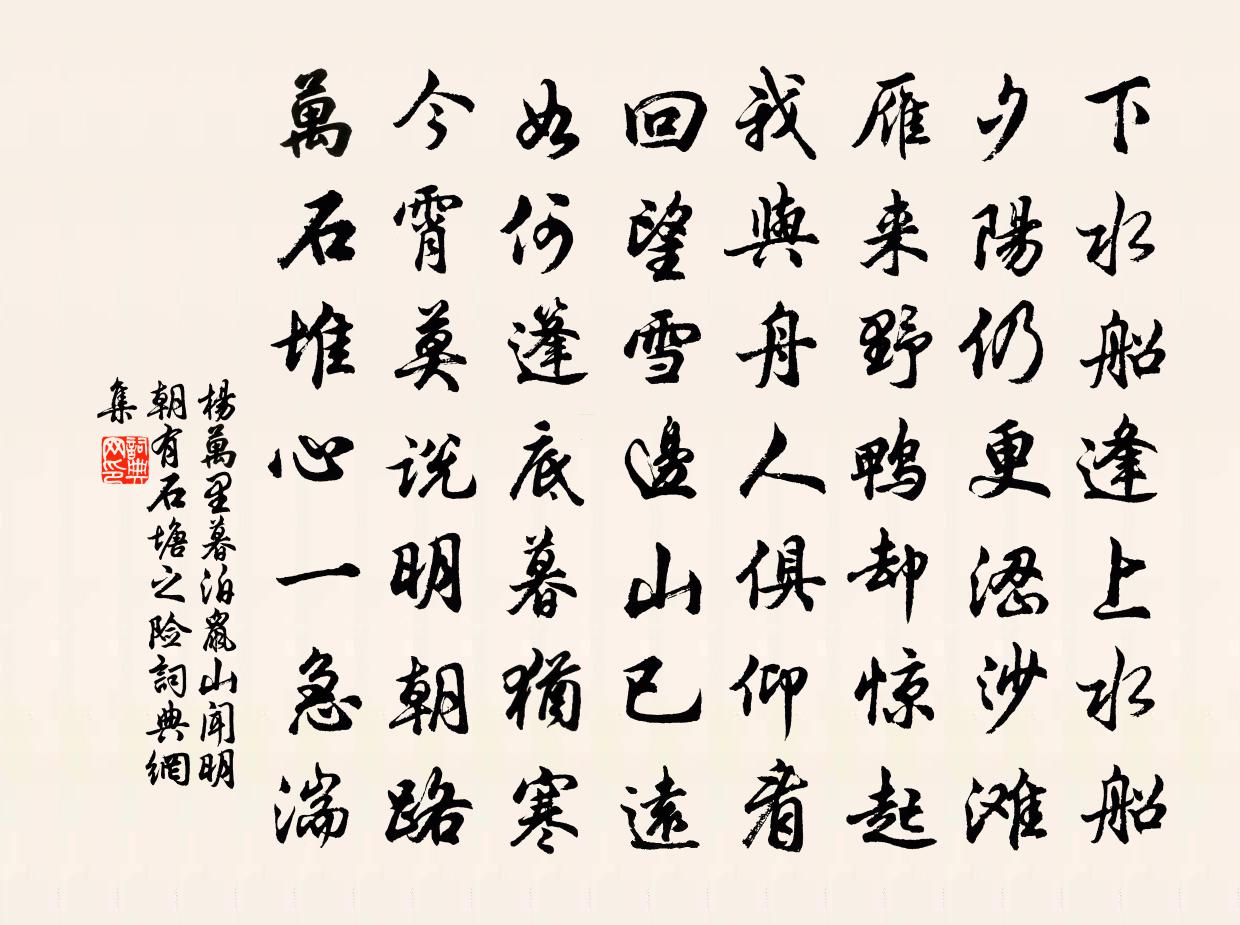 下水船逢上水船
夕陽仍更涩沙滩
雁来野鴨却惊起
我與舟人俱仰看
回望雪邊山已遠
如何篷底暮猶寒
今霄莫説明朝路
萬石堆心一急湍
楊萬里暮泊鼠山闻明
朝有石塘之险詞典網
集
詞典
网印